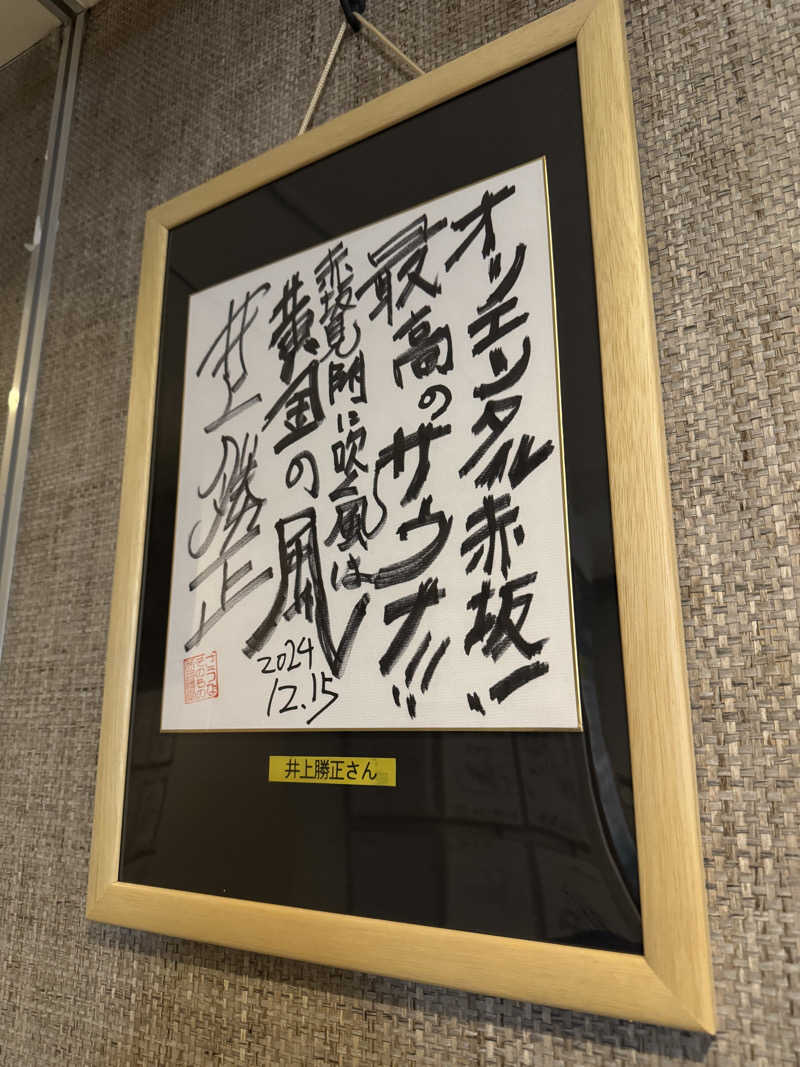 オリエンタル赤坂!
最高のサウナ!!!
赤坂見附に吹く風は
黄金の風
井上勝正
2024
12.15
井上勝正さん